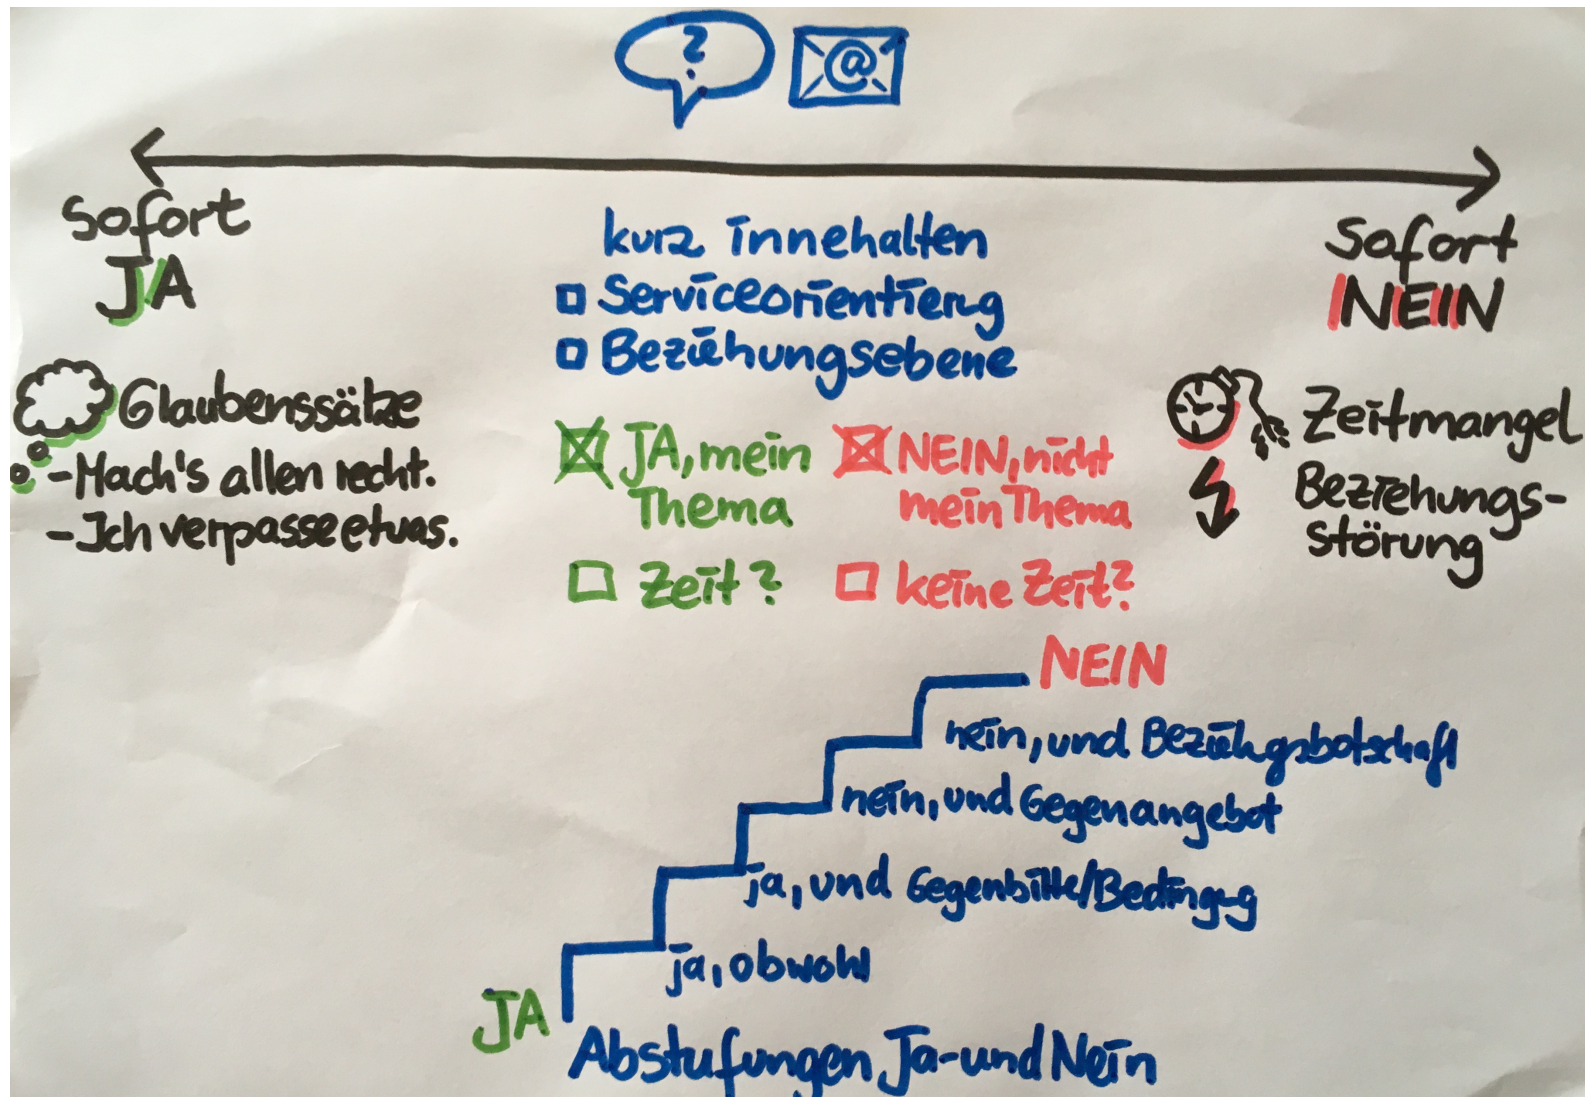 ?
@
Sofort
JA
Glaubenssätze
-Mach's allen recht.
-Ich verpasse etwas.
kurz innehalten
Serviceorientierg
Beziehungsebene
JA, mein
Thema
NEIN, nicht
mein Thema
Zeit?
keine Zeit?
Sofort
NEIN
Zeitmangel
Beziehungs-
störung
NEIN
nein, und Beziehgsbotschaft
nein, und Gegenangebot
ja, und Gegenbitte/Bedingg
ja, obwohl
JA
Abstufungen Ja-und Nein